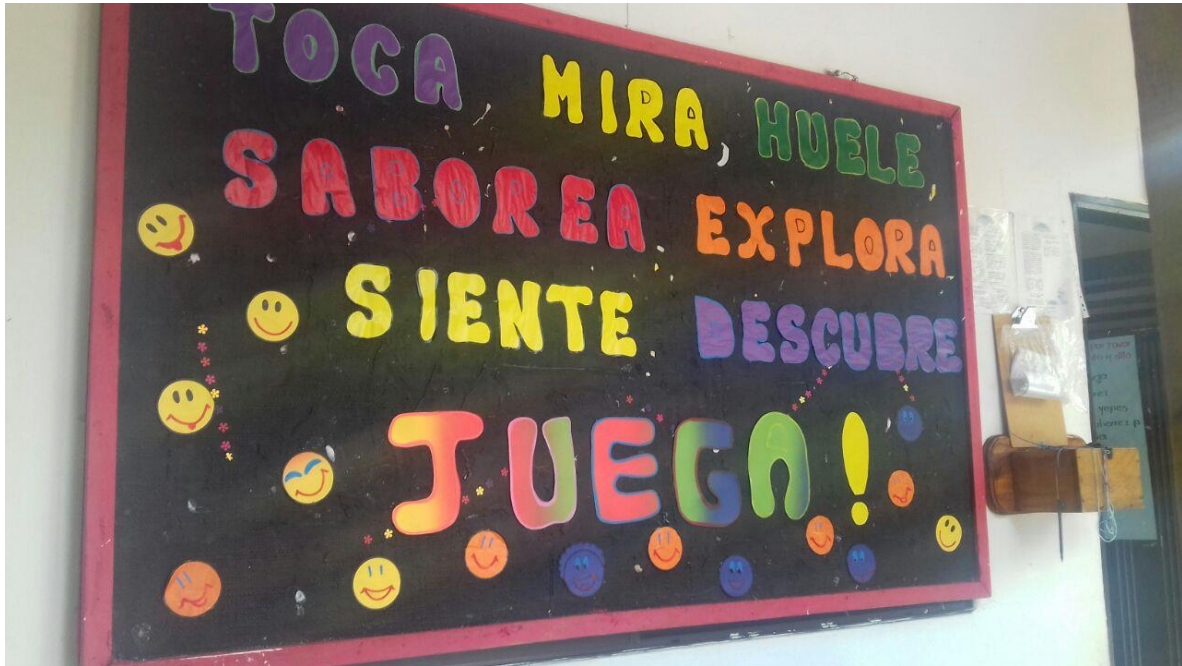 TOCA MIRA, HUELE,
SABOREA EXPLORA
SIENTE DESCUBRE
JUEGA!
por favor